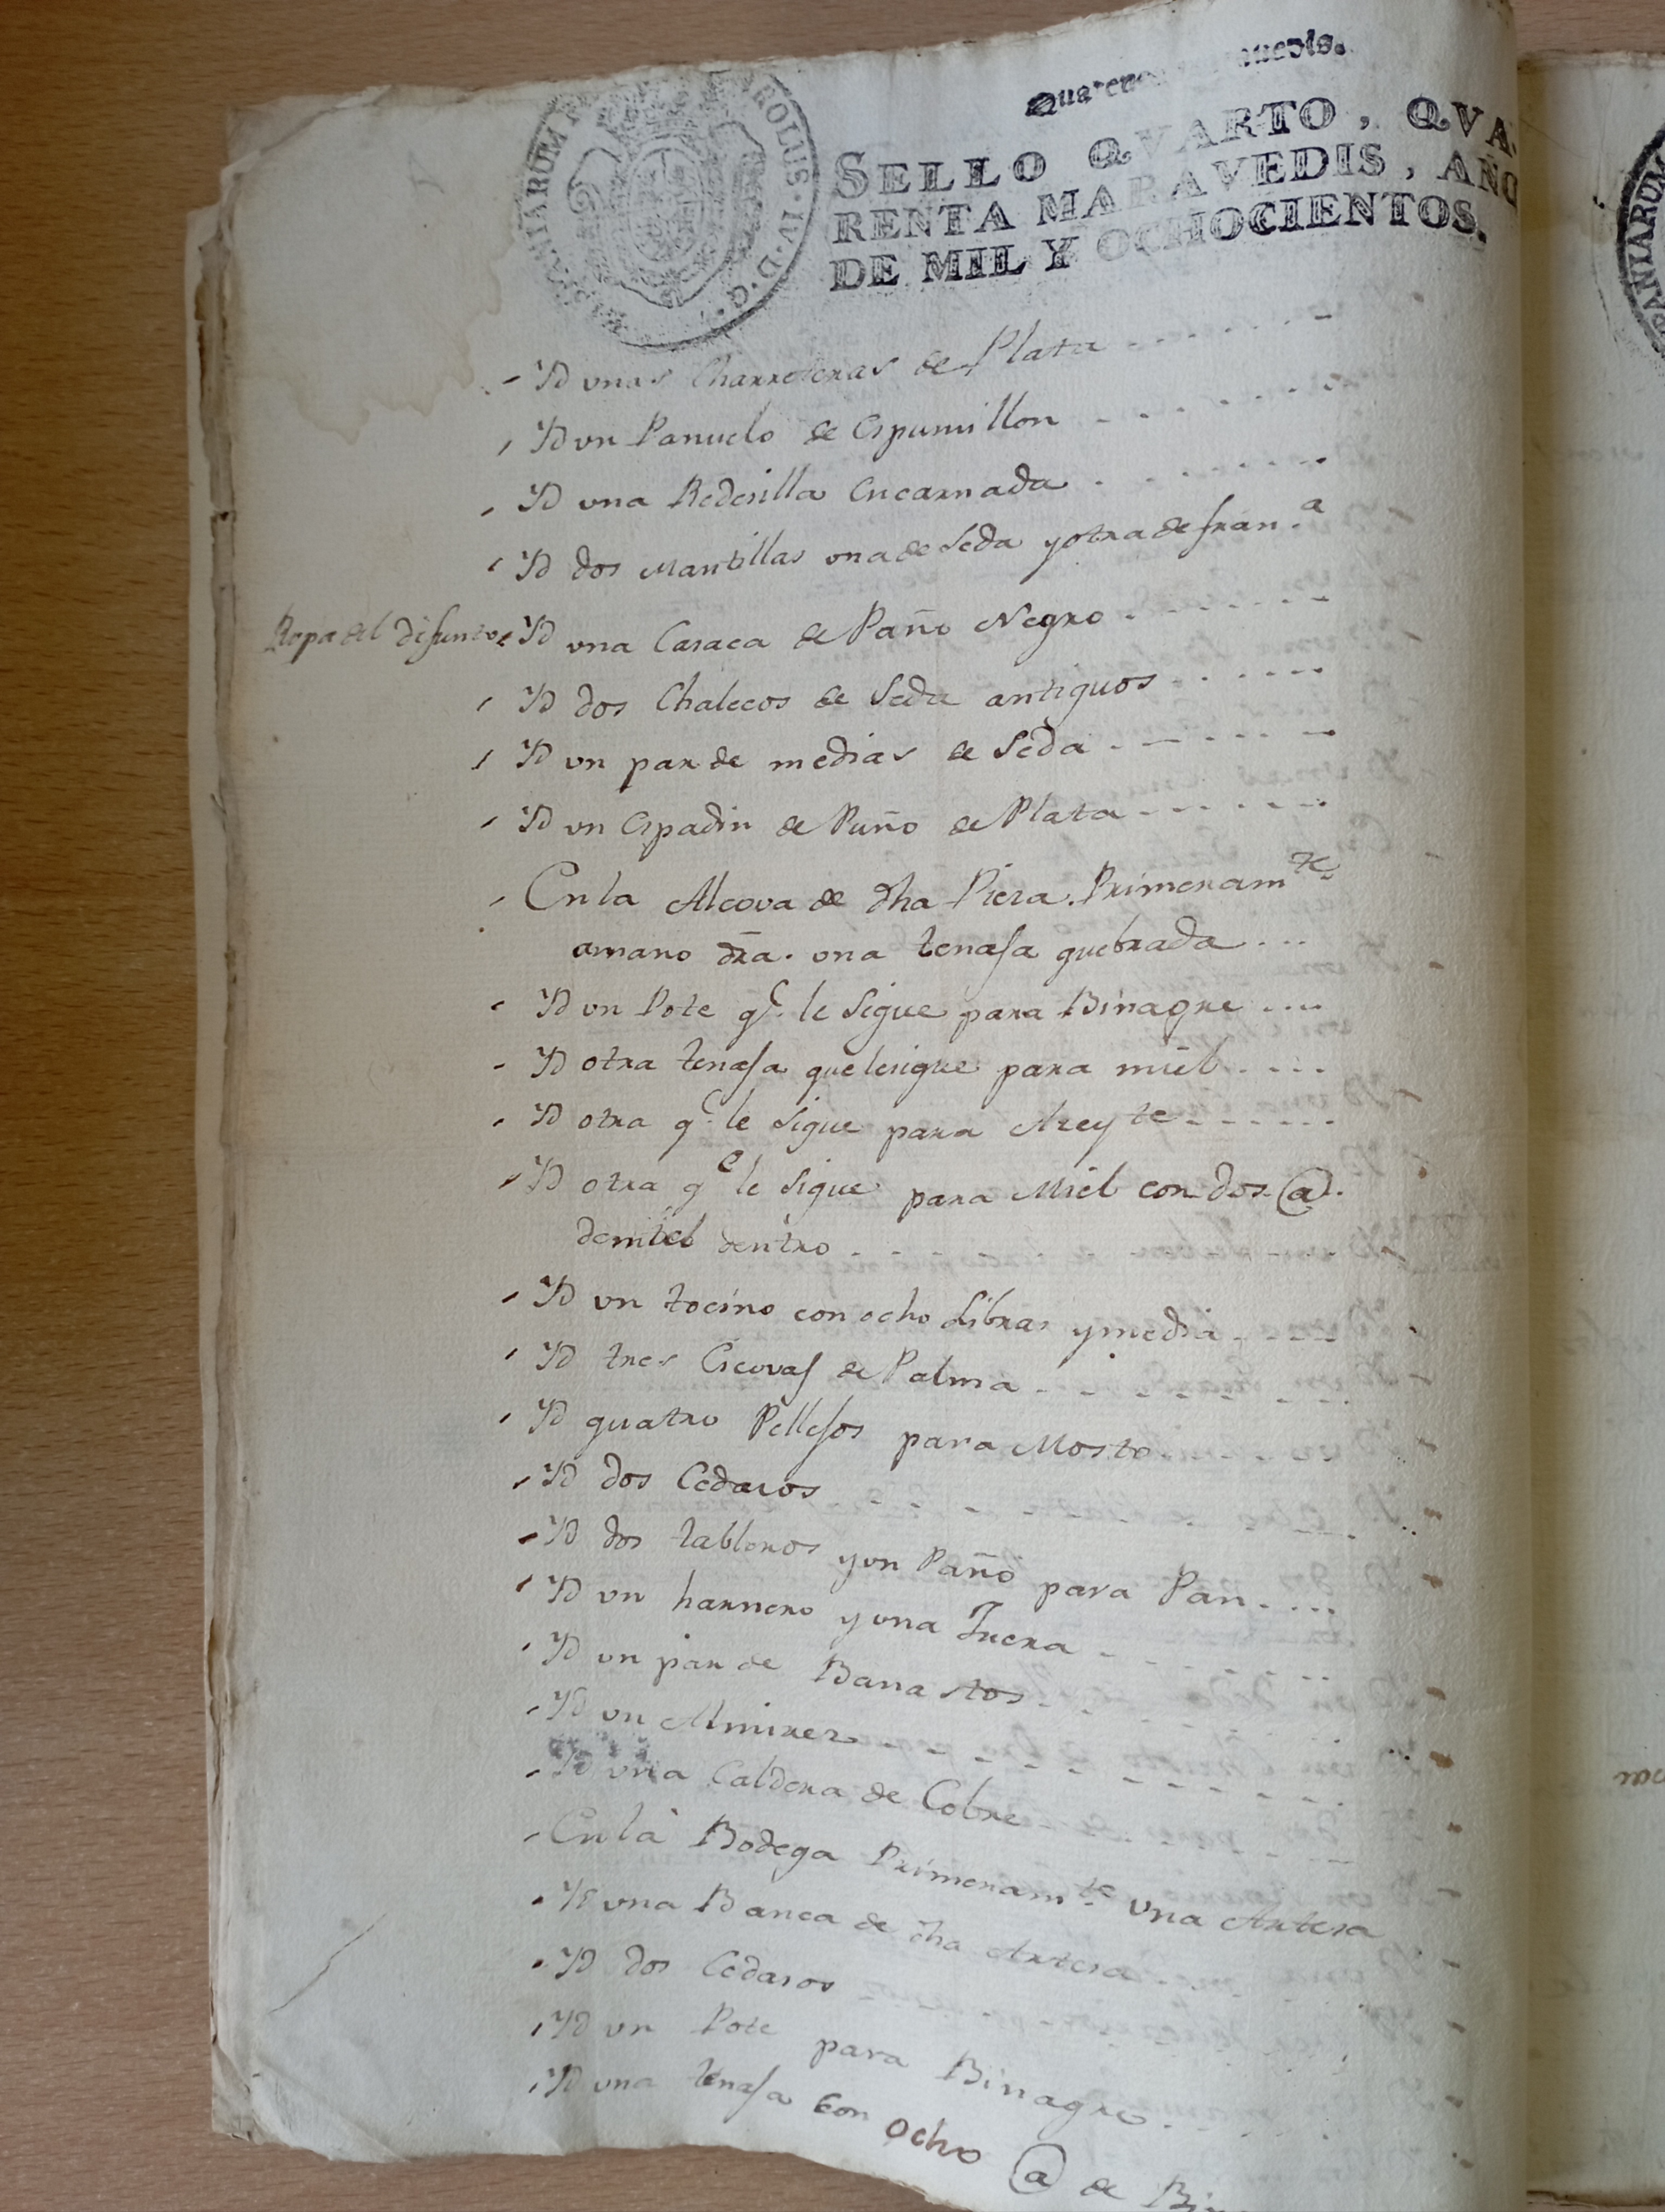 SELLO QVARTO, QVA
RENTA MARAVEDIS, AÑO
DE MIL Y OCHOCIENTOS.
HISPANIARUM
CAROLUS · IV · D · G ·
Yd vnas Charreteras de Plata
Yd vn Panuelo de Espumillon
Yd vna Redesilla Encarnada
Yd dos Mantillas vna de Seda y otra de fran.a
Ropa del difunto Yd vna Casaca de Paño Negro
Yd dos Chalecos de Seda antiguos
Yd vn par de medias de Seda
Yd vn Espadin de Puño de Plata
En la Alcova de dha Pieza. Primeramte
amano dra. vna tenasa quebrada
Yd vn Pote qe. le Sigue para Binagre
Yd otra tenasa que le sigue para miel
Yd otra qe. le Sigue para Azeyte
Yd otra qe le Sigue para Miel con dos @.
de miel dentro
Yd vn tocino con ocho Libras y media
Yd tres Escovas de Palma
Yd quatro Pellesos para Mosto
Yd dos Cedasos
Yd dos tableros y vn Paño para Pan
Yd vn harnero y vna
Yd vn par de Banastos
Yd vn Almirez
Yd vna Caldera de Cobre
En la Bodega Primeramte. vna Artesa
Yd vna Banca de dha Artesa
Yd dos Cedasos
Yd vn Pote para Binagre
Yd vna tenasa con ocho @ de